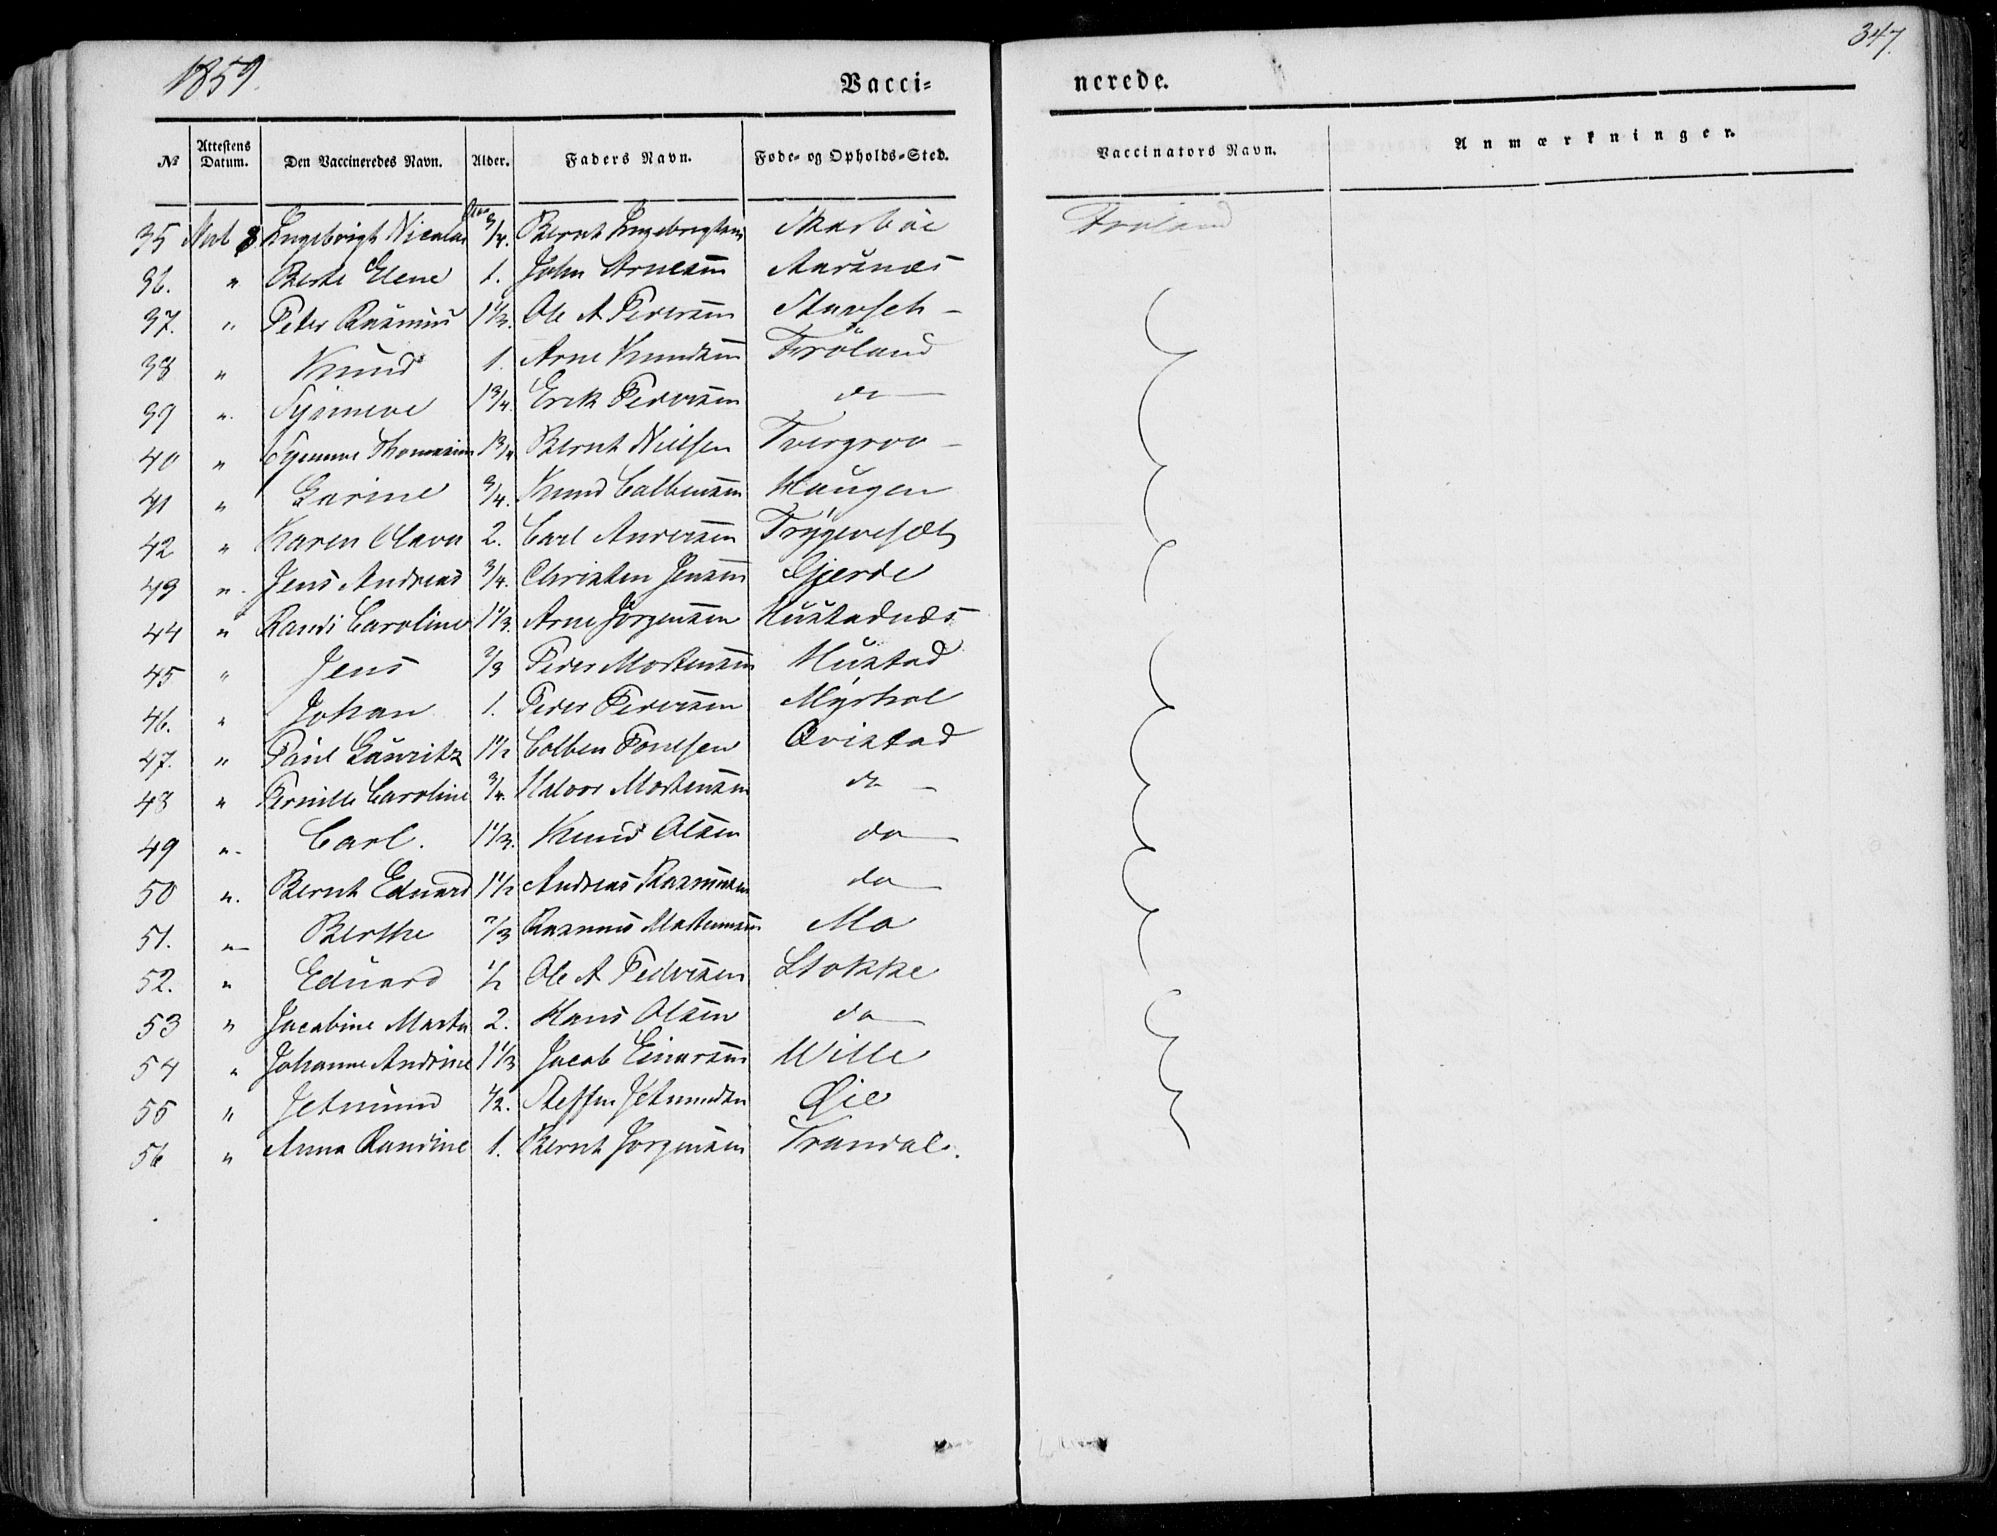 1859.
347.
Vacci- nerede.
№ Attestens Datum. Den Vaccineredes Navn. Alder. Faders Navn. Føde- og Opholds-Sted. Vaccinators Navn. Anmærkninger.
35 8 Engebrigt Nicolai 3/4. Bernt Engebrigtsen Skarbøe Frøland
36. " Berte Elene 1. John Arnesen Aarsnæs
37. " Peter Rasmus 1 1/3. Ole A Pedersen
38 " Knud 1. Arne Knudsen Frøland
39 ". Synneve 1 3/4. Erik Pedersen do
40 " Synneve Thomasine 1 3/4 Bernt Nielsen Tvergroo
41 " Garine 3/4. Knud Colbensen Haugen
42 " Karen Olava 2. Carl Andersen Tryggesæt
43 ". Jens Andreas 3/4. Christen Jensen Gjerde
44 " Randi Caroline 1 1/3. Arne Jørgensen Hustadnæs
45 " Jens 2/3 Peder Mortensen Hustad
46. " Johan 1. Peder Pedersen Myrhol
47. " Paul Lauritz 1 1/2 Colben Poulsen Qvistad
48 " Pernille Caroline 3/4. Halvor Mortensen do
49 ". Carl. 1 1/3. Knud Olsen do
50 ". Bernt Eduard 1 1/2 Andreas Rasmusen do
51. " Berthe 2/3 Rasmus Mortensen Mo
52. " Eduard 1/2 Ole A Pedersen Stokke
53 " Jacobine Marta 2. Hans Olsen do
54 " Johanne Andrine 1 1/3 Jacob Einarsen Wille
55 " Jetmund 1/2. Steffen Jetmundsen Øie
56 " Anna Randine 1. Bernt Jørgensen Trandal.